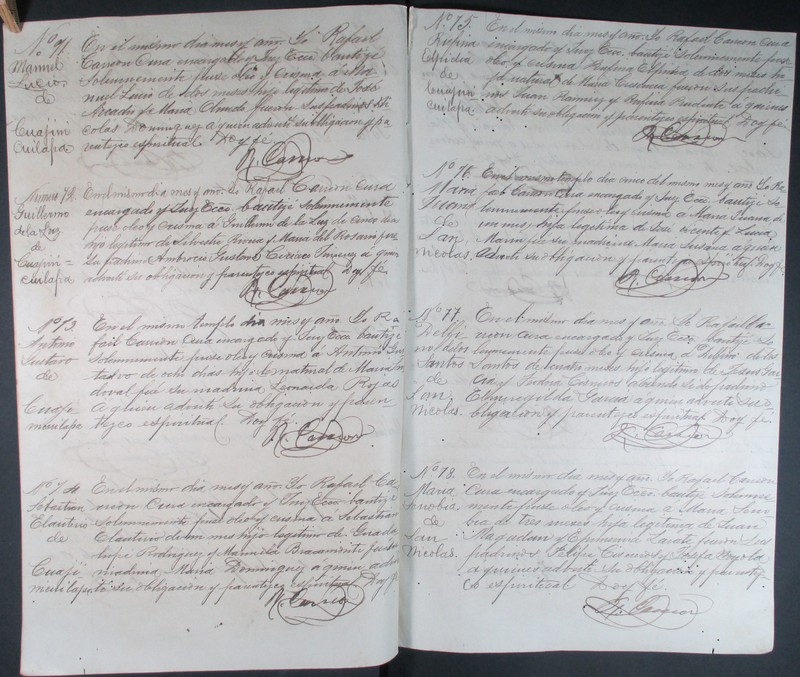 No. 71.
Manuel
Lucio
de
Cuajini
cuilapa
En el mismo dia mes y año. Yo Rafael
Carrion Cura encargado y Juez Ecco. bautizé
Solemnemente puse oleo y crisma a Ma
nuel Lucio de dos meses hijo legitimo de José
Arcadio y de Maria Olmedo fueron sus padrinos Ni
colas Dominguez a quien advertí su obligacion y pa
rentezco espiritual. Doy fé
R. Carrion
Numro. 72
Guillermo
de la Luz
de
Cuajini=
cuilapa
En el mismo dia mes y año. Yo Rafael Carrion Cura
encargado y Juez Ecco. bautizé Solemnemente
puse oleo y crisma a Guillermo de la Luz de cinco dias
hijo legitimo de Silvestre y Maria del Rosario fue
su padrino Ambrocio Gustavo a quien
advertí su obligacion y parentezco espiritual Doy fé
R. Carrion
No. 73.
Antonio
Gustavo
de
Cuaji
menilapa
En el mismo templo dia mes y año. Yo Ra
fael Carrion Cura encargado y Juez Ecco. bautizé
Solemnemente puse oleo y crisma á Antonio Gus
tavo de ocho dias hijo natural de Maria San
doval fué su madrina Leonarda Rojas
a quien advertí su obligacion y paren
tezco espiritual. Doy fé
R. Carrion
No. 74
Sebastian
Elauterio
de
Cuaji
menilapa
En el mismo dia mes y año. Yo Rafael Ca
rrion Cura encargado y Juez Ecco. bautizé
Solemnemente puse oleo y crisma á Sebastian
Elauterio de un mes hijo legitimo de Guada
lupe Rodriguez y Bracamonte fue su
madrina Maria Dominguez a quien adver
tí su obligacion y parentezco espiritual Doy fé
R. Carrion
No. 75.
Rufina
Elpidia
de
Cuajini
cuilapa
En el mismo dia mes y año. Yo Rafael Carrion Cura
encargado y Juez Ecco. bautizé Solemnemente puse
oleo y crisma Rufina Elpidia de dos meses hi
ja natural de Maria fueron sus padri
nos Juan Ramirez y Rufina Prudente a quienes
advertí su obligacion y parentezco espiritual. Doy fé
R. Carrion
No. 76.
Maria
Juana
de
San
Nicolas.
En el templo dia cinco del mismo mes y año Yo Ra
fael Carrion Cura encargado y Juez Ecco. bautizé So
lemnemente puse oleo y crisma á Maria Juana de
un mes hija legitima de José Vicente y
fue su madrina Maria Susana a quien
advertí su obligacion y parentezco espiritual. Doy fé
R. Carrion
No. 77.
Delfi
no de los
Santos
de
San
Nicolas.
En el mismo dia mes y año. Yo Rafael Ca
rrion cura encargado y Juez Ecco. bautizé So
lemnemente puse oleo y crisma á Delfino de los
Santos de cuatro meses hijo legitimo de Jesus Gar
cia y Cisneros siendo su padrino
Garcia a quien advertí su o
bligacion y parentezco espiritual. Doy fé
R. Carrion
No. 78.
Maria
Zenobia
de
San
Nicolas.
En el mismo dia mes y año. Yo Rafael Carrion
Cura encargado y Juez Ecco. bautizé Solemne
mente puse oleo y crisma á Maria Zeno
bia de tres meses hija legitima de Juan
Magadan y Epimenia Zarate fueron sus
padrinos Felipe Cosmios y Josefa Noyola
a quienes advertí su obligacion y parentez
co espiritual Doy fé
R. Carrion